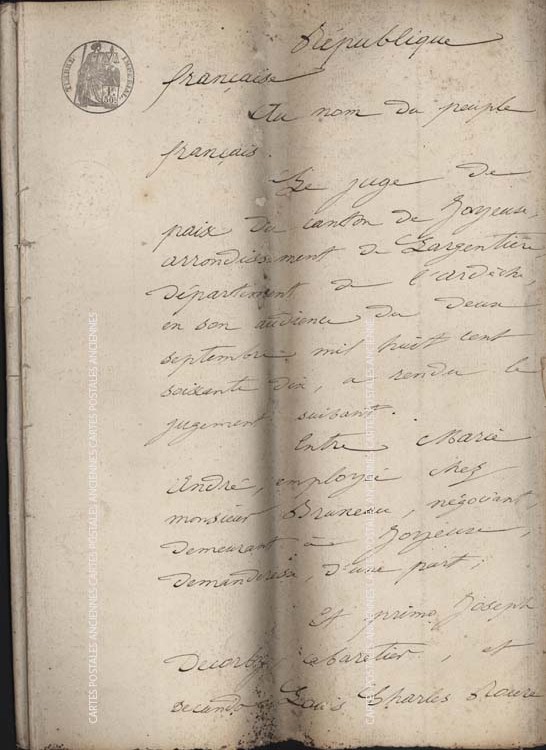 TIMBRE IMPÉRIAL
République
française
Au nom du peuple
français.
Le juge de
paix du canton de Joyeuse,
arrondissement de Largentière,
département de l'ardèche,
en son audience du deux
septembre mil huit cent
soixante dix, a rendu le
jugement suivant.
Entre Marie
André, employée chez
monsieur Bruneau, négociant,
demeurant à Joyeuse,
demanderesse, d'une part;
Et primo, Joseph
cabaretier, et
secundo Louis Charles Roure
CARTES POSTALES ANCIENNES CARTES POSTALES ANCIENNES CARTES POSTALES ANCIENNES
CARTES POSTALES ANCIENNES CARTES POSTALES ANCIENNES CARTES POSTALES ANCIENNES